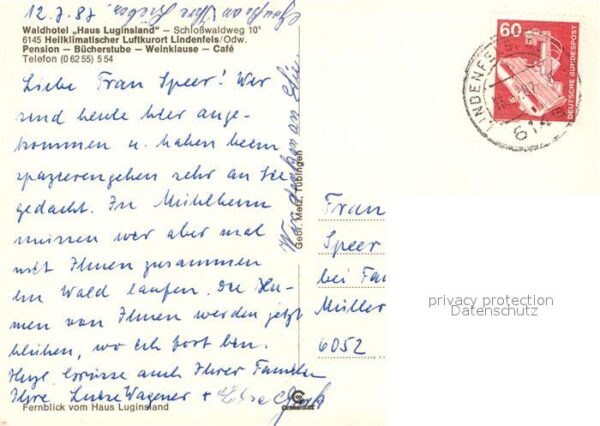 12.7.87
Waldhotel „Haus Luginsland" – Schloßwaldweg 10'
6145 Heilklimatischer Luftkurort Lindenfels/Odw.
Pension – Bücherstube – Weinklause – Café
Telefon (0 62 55) 5 54
Liebe Frau Speer! Wir
sind heute hier ange-
kommen u. haben beim
spazierengehen sehr an Sie
gedacht. In Mühlheim
müssen wir aber mal
mit Ihnen zusammen
im Wald laufen. Die
men von Ihnen werden jetzt
blühen, wo ich fort bin.
Herzl. Grüsse auch Ihrer Familie
Ihre Luise Wagener +
Fernblick vom Haus Luginsland
Wir denken an Sie.
Gebr. Metz, Tübingen
60
DEUTSCHE BUNDESPOST
LINDENFELS
614
Frau
Speer
bei Fa
Müller
6052
privacy protection
Datenschutz